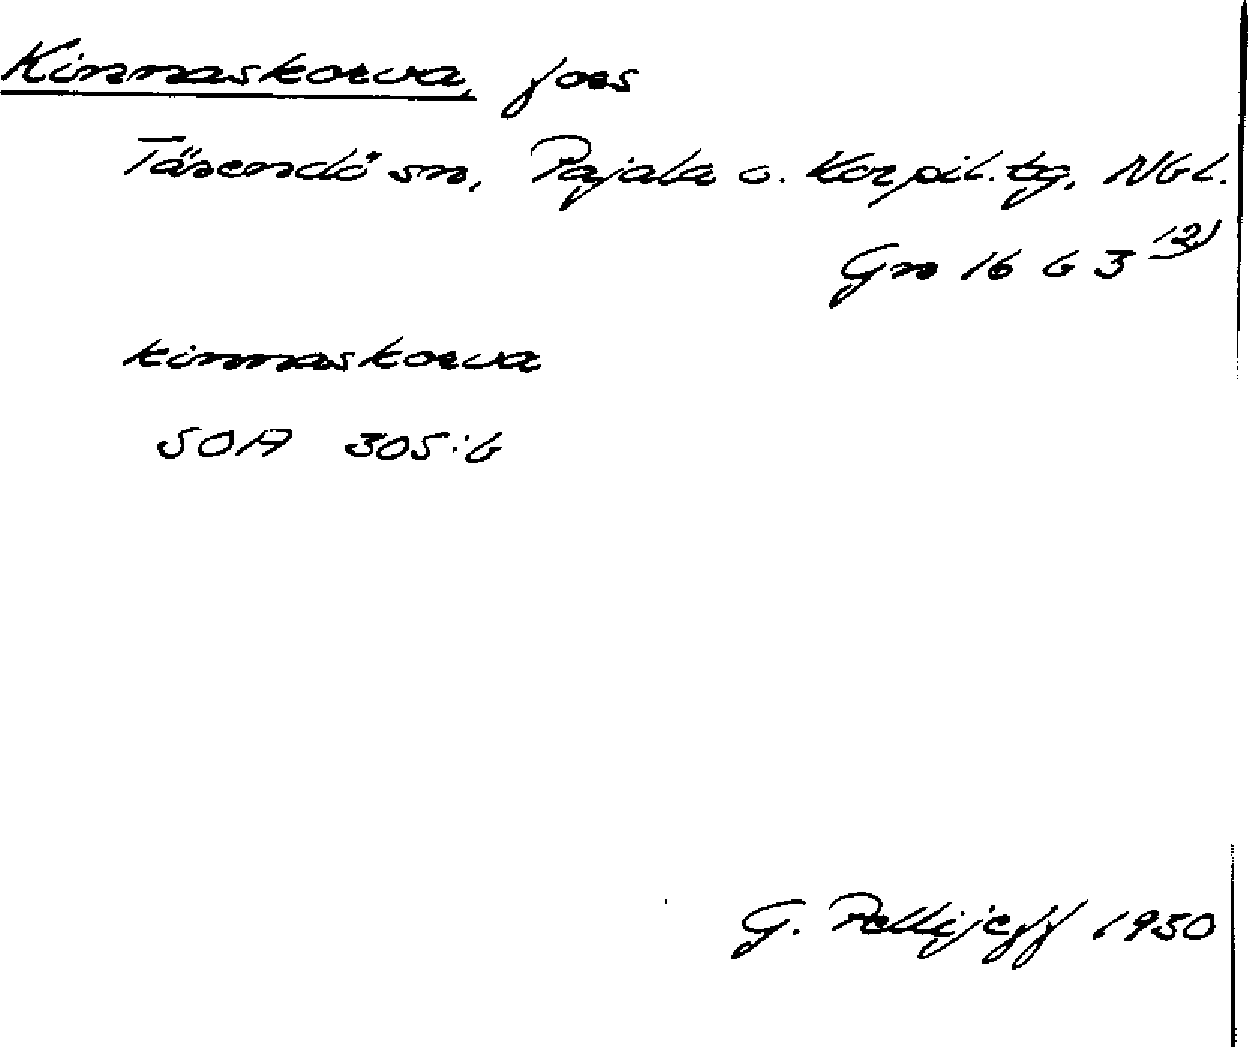 Kinnaskorva, fors
Tärendö sn, Pajala o. Korpil. tg, Nbl.
Gn 16 b 3 12)
kinnaskorva
SOA 305:6
G. Pellijeff 1950